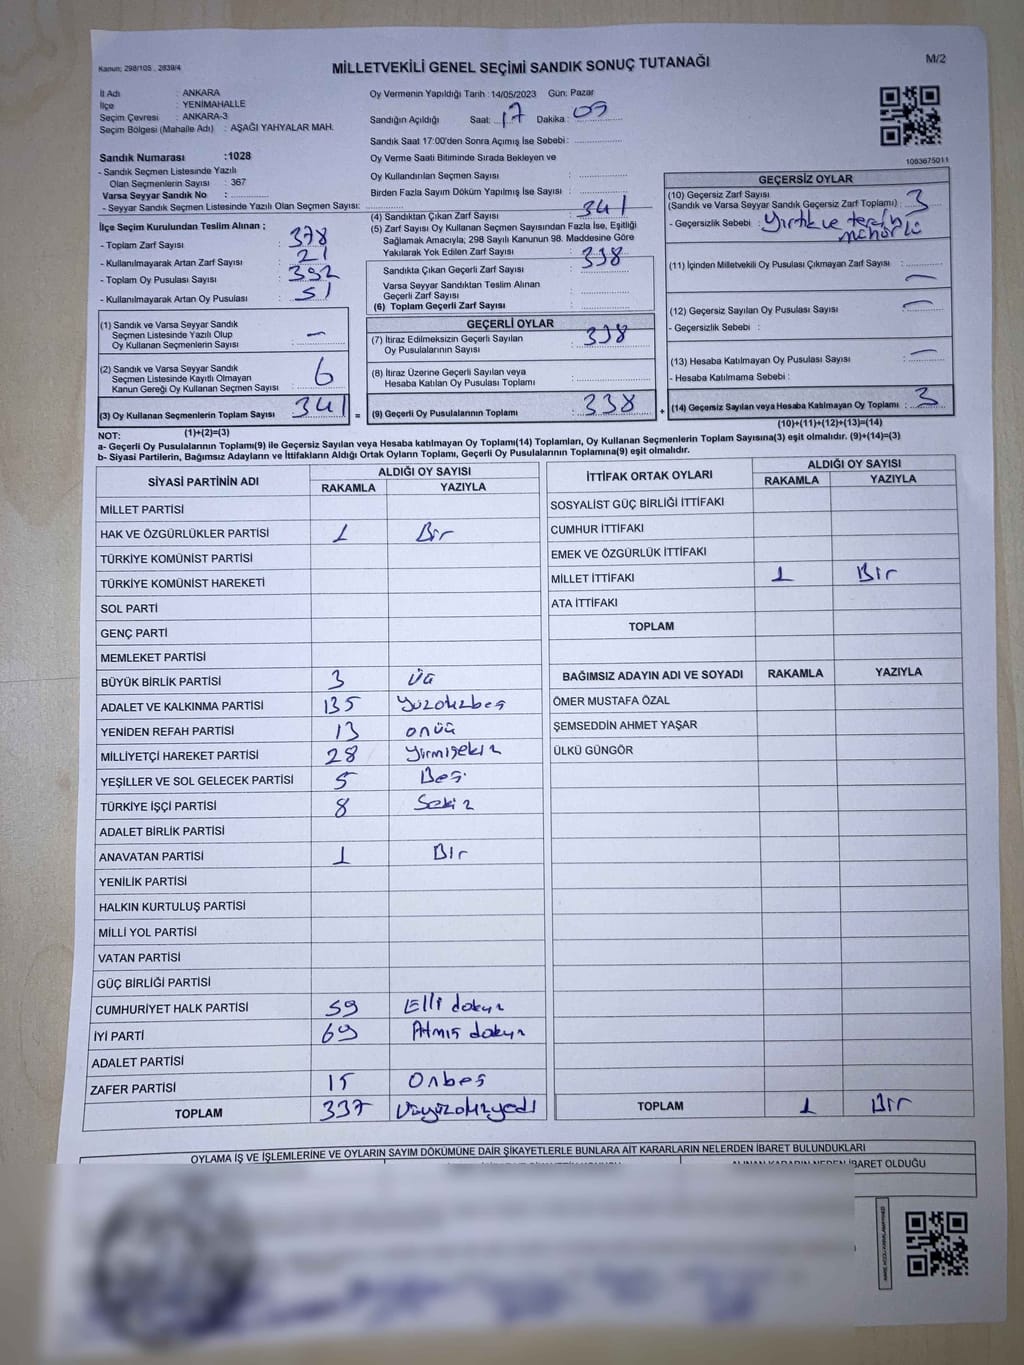 Kanun: 298/105 , 2839/4
MİLLETVEKİLİ GENEL SEÇİMİ SANDIK SONUÇ TUTANAĞI
M/2
İl Adı : ANKARA
İlçe : YENİMAHALLE
Seçim Çevresi : ANKARA-3
Seçim Bölgesi (Mahalle Adı) : AŞAĞI YAHYALAR MAH.
Sandık Numarası :1028
- Sandık Seçmen Listesinde Yazılı
Olan Seçmenlerin Sayısı : 367
Varsa Seyyar Sandık No :
- Seyyar Sandık Seçmen Listesinde Yazılı Olan Seçmen Sayısı:
İlçe Seçim Kurulundan Teslim Alınan ;
- Toplam Zarf Sayısı : 378
- Kullanılmayarak Artan Zarf Sayısı : 21
- Toplam Oy Pusulası Sayısı : 392
- Kullanılmayarak Artan Oy Pusulası : 51
(1) Sandık ve Varsa Seyyar Sandık
Seçmen Listesinde Yazılı Olup
Oy Kullanan Seçmenlerin Sayısı : -
(2) Sandık ve Varsa Seyyar Sandık
Seçmen Listesinde Kayıtlı Olmayan
Kanun Gereği Oy Kullanan Seçmen Sayısı : 6
(3) Oy Kullanan Seçmenlerin Toplam Sayısı : 341
Oy Vermenin Yapıldığı Tarih : 14/05/2023 Gün: Pazar
Sandığın Açıldığı Saat: 17 Dakika: 09
Sandık Saat 17:00'den Sonra Açımış İse Sebebi:
Oy Verme Saati Bitiminde Sırada Bekleyen ve
Oy Kullandırılan Seçmen Sayısı :
Birden Fazla Sayım Döküm Yapılmış İse Sayısı :
(4) Sandıktan Çıkan Zarf Sayısı : 341
(5) Zarf Sayısı Oy Kullanan Seçmen Sayısından Fazla İse, Eşitliği
Sağlamak Amacıyla; 298 Sayılı Kanunun 98. Maddesine Göre
Yakılarak Yok Edilen Zarf Sayısı :
Sandıkta Çıkan Geçerli Zarf Sayısı : 338
Varsa Seyyar Sandıktan Teslim Alınan
Geçerli Zarf Sayısı :
(6) Toplam Geçerli Zarf Sayısı :
GEÇERLİ OYLAR
(7) İtiraz Edilmeksizin Geçerli Sayılan
Oy Pusulalarının Sayısı : 338
(8) İtiraz Üzerine Geçerli Sayılan veya
Hesaba Katılan Oy Pusulası Toplamı :
= (9) Geçerli Oy Pusulalarının Toplamı : 338 +
1083675011
GEÇERSİZ OYLAR
(10) Geçersiz Zarf Sayısı
(Sandık ve Varsa Seyyar Sandık Geçersiz Zarf Toplamı) : 3
- Geçersizlik Sebebi : Yırtık ve tercih
mühürlü
(11) İçinden Milletvekili Oy Pusulası Çıkmayan Zarf Sayısı : -
(12) Geçersiz Sayılan Oy Pusulası Sayısı : -
- Geçersizlik Sebebi :
(13) Hesaba Katılmayan Oy Pusulası Sayısı : -
- Hesaba Katılmama Sebebi :
(14) Geçersiz Sayılan veya Hesaba Katılmayan Oy Toplamı : 3
(10)+(11)+(12)+(13)=(14)
NOT: (1)+(2)=(3)
a- Geçerli Oy Pusulaları Toplamı(9) ile Geçersiz Sayılan veya Hesaba katılmayan Oy Toplamı(14) Toplamları, Oy Kullanan Seçmenlerin Toplam Sayısına(3) eşit olmalıdır. (9)+(14)=(3)
b- Siyasi Partilerin, Bağımsız Adayların ve İttifakların Aldığı Ortak Oyların Toplamı, Geçerli Oy Pusulalarının Toplamına(9) eşit olmalıdır.
SİYASİ PARTİNİN ADI ALDIĞI OY SAYISI
RAKAMLA YAZIYLA
MİLLET PARTİSİ
HAK VE ÖZGÜRLÜKLER PARTİSİ 1 Bir
TÜRKİYE KOMÜNİST PARTİSİ
TÜRKİYE KOMÜNİST HAREKETİ
SOL PARTİ
GENÇ PARTİ
MEMLEKET PARTİSİ
BÜYÜK BİRLİK PARTİSİ 3 Üç
ADALET VE KALKINMA PARTİSİ 135 Yüzotuzbeş
YENİDEN REFAH PARTİSİ 13 onüç
MİLLİYETÇİ HAREKET PARTİSİ 28 Yirmisekiz
YEŞİLLER VE SOL GELECEK PARTİSİ 5 Beş
TÜRKİYE İŞÇİ PARTİSİ 8 Sekiz
ADALET BİRLİK PARTİSİ
ANAVATAN PARTİSİ 1 BIr
YENİLİK PARTİSİ
HALKIN KURTULUŞ PARTİSİ
MİLLİ YOL PARTİSİ
VATAN PARTİSİ
GÜÇ BİRLİĞİ PARTİSİ
CUMHURİYET HALK PARTİSİ 59 Elli dokuz
İYİ PARTİ 69 Atmış dokuz
ADALET PARTİSİ
ZAFER PARTİSİ 15 Onbeş
TOPLAM 337 Üçyüzotuzyedi
İTTİFAK ORTAK OYLARI ALDIĞI OY SAYISI
RAKAMLA YAZIYLA
SOSYALİST GÜÇ BİRLİĞİ İTTİFAKI
CUMHUR İTTİFAKI
EMEK VE ÖZGÜRLÜK İTTİFAKI
MİLLET İTTİFAKI 1 BIr
ATA İTTİFAKI
TOPLAM
BAĞIMSIZ ADAYIN ADI VE SOYADI RAKAMLA YAZIYLA
ÖMER MUSTAFA ÖZAL
ŞEMSEDDİN AHMET YAŞAR
ÜLKÜ GÜNGÖR
TOPLAM 1 BIr
OYLAMA İŞ VE İŞLEMLERİNE VE OYLARIN SAYIM DÖKÜMÜNE DAİR ŞİKAYETLERLE BUNLARA AİT KARARLARIN NELERDEN İBARET BULUNDUKLARI
ALINAN KARARIN NEDEN İBARET OLDUĞU